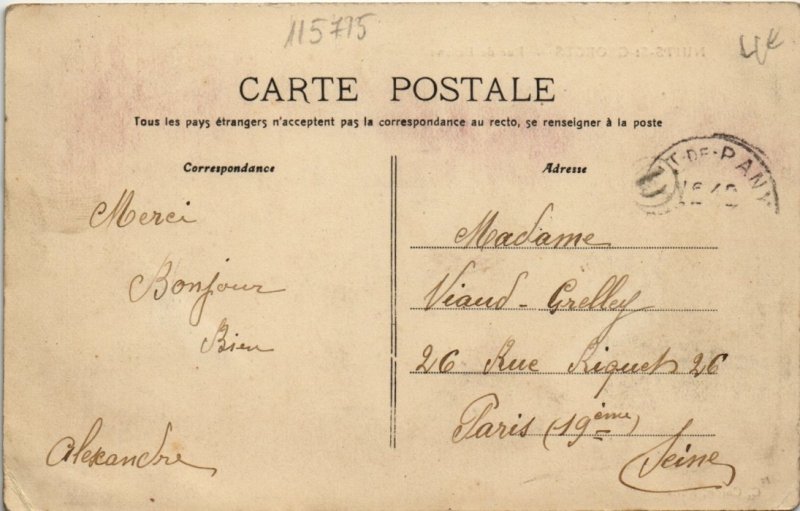 115715
CARTE POSTALE
Tous les pays étrangers n'acceptent pas la correspondance au recto, se renseigner à la poste
Correspondance
Merci
Bonjour
Bien
Alexandre
Adresse
Madame
Viaud-Grelley
26 Rue Riquet 26
Paris (19ème)
Seine
T-DE-PANY